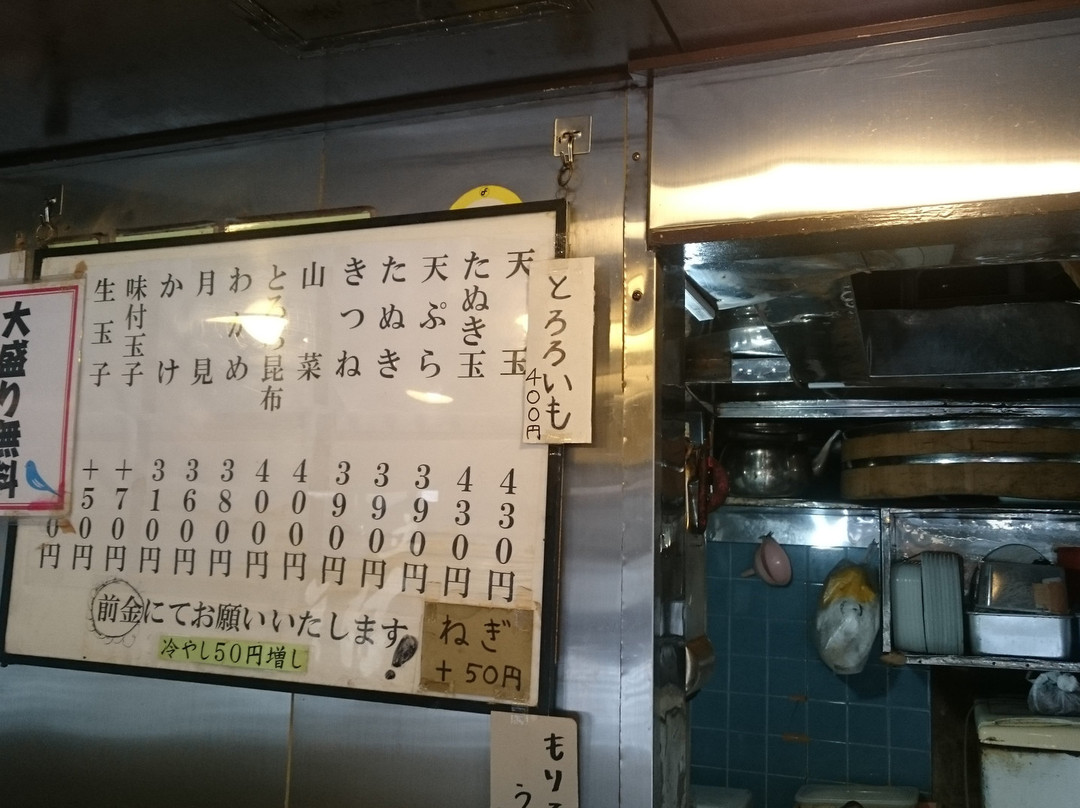 とろろいも
400円
天玉 430円
たぬき玉 430円
天ぷら 390円
たぬき 390円
きつね 390円
山菜 400円
とろろ昆布 400円
わかめ 380円
月見 360円
かけ 310円
味付玉子 +70円
生玉子 +50円
0円
大盛り無料
前金にてお願いいたします!
冷やし50円増し
ねぎ
+50円
もり
う